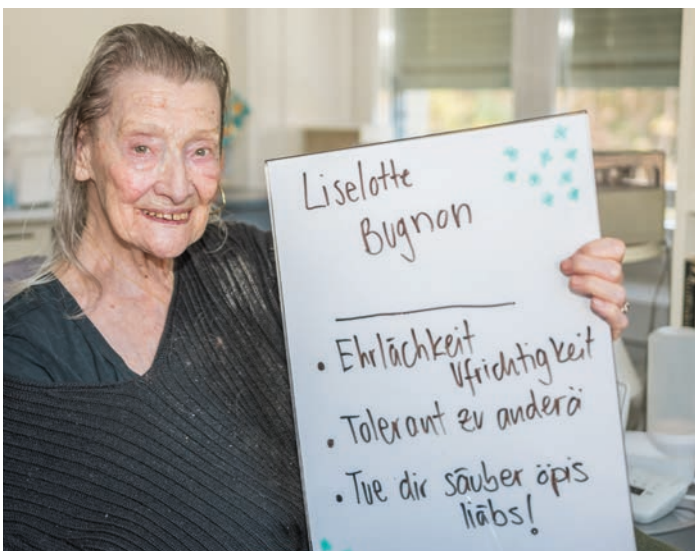 Liselotte
Bugnon
• Ehrlächkeit
Ufrichtigkeit
• Tolerant zu anderä
• Tue dir säuber öpis
liäbs!